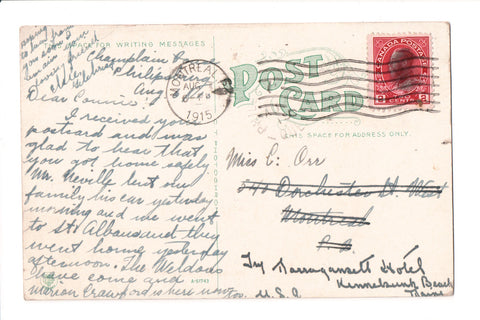 hoping
to hear from
you soon
I am
your
loving friend
SPACE FOR WRITING MESSAGES
Champlain
Philipsburg
Aug
Dear Connie:
I received your
postcard and was
glad to hear that
you got home safely.
Mr. Neville lent our
family his car yesterday
morning and we went
to St. Albans and they
went home yesterday
afternoon. The Weldons
have come and
Marion Crawford is here now
A-51743
MONTREAL
AUG
1915
POST
CARD
THIS SPACE FOR ADDRESS ONLY.
CANADA POSTAGE
2 CENTS 2
Miss C. Orr
Dorchester St. West
Montreal
P.Q
Narragansett Hotel
Kennebunk Beach
Maine
U.S.A